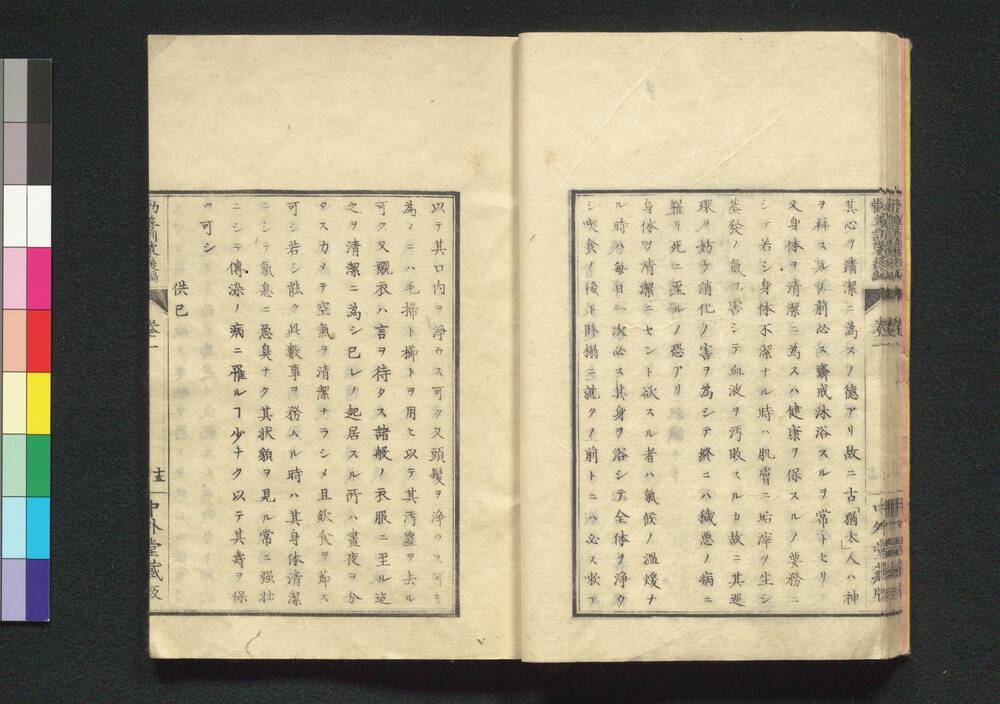 其心ヲ清潔ニ為スノ德アリ故ニ古「猶太」人ハ神
ヲ拜スルノ前必ス齋戒沐浴スルヲ常トセリ
又身体ヲ清潔ニ為スハ健康ヲ保スルノ要務ニ
シテ若シ身体不潔ナル時ハ肌膚ニ垢滓ヲ生シ
蒸發ノ氣ヲ害シテ血液ヲ汚敗スルカ故ニ其巡
環ヲ妨ケ消化ノ害ヲ為シテ終ニハ穢悪ノ病ニ
罹リ死ニ至ルノ恐アリ
身体ヲ清潔ニセント欲スル者ハ氣候ノ温煖ナ
ル時ハ毎日一次必ス其身ヲ浴シテ全体ヲ淨ウ
シ喫食ノ後ト臥榻ニ就クノ前トニハ必ス漱テ
以テ其口内ヲ淨ウス可ク又頭髮ヲ淨ウス可キ
為メニハ毛掃ト櫛トヲ用ヒ以テ其汚塵ヲ去ル
可ク又襯衣ハ言ヲ待タス諸般ノ衣服ニ至ル迄
之ヲ清潔ニ為シ己レノ起居スル所ハ晝夜ヲ分
タス力メテ空氣ヲ清潔ナラシメ且飲食ヲ節ス
可シ若シ能ク此數事ヲ務ムル時ハ其身体清潔
ニシテ氣息ニ悪臭ナク其狀貌ヲ見ル常ニ强壮
ニシテ傳染ノ病ニ罹ルヿ少ナク以テ其壽ヲ保
ツ可シ
供已
勸善訓蒙後編
卷一
十五
中外堂藏版